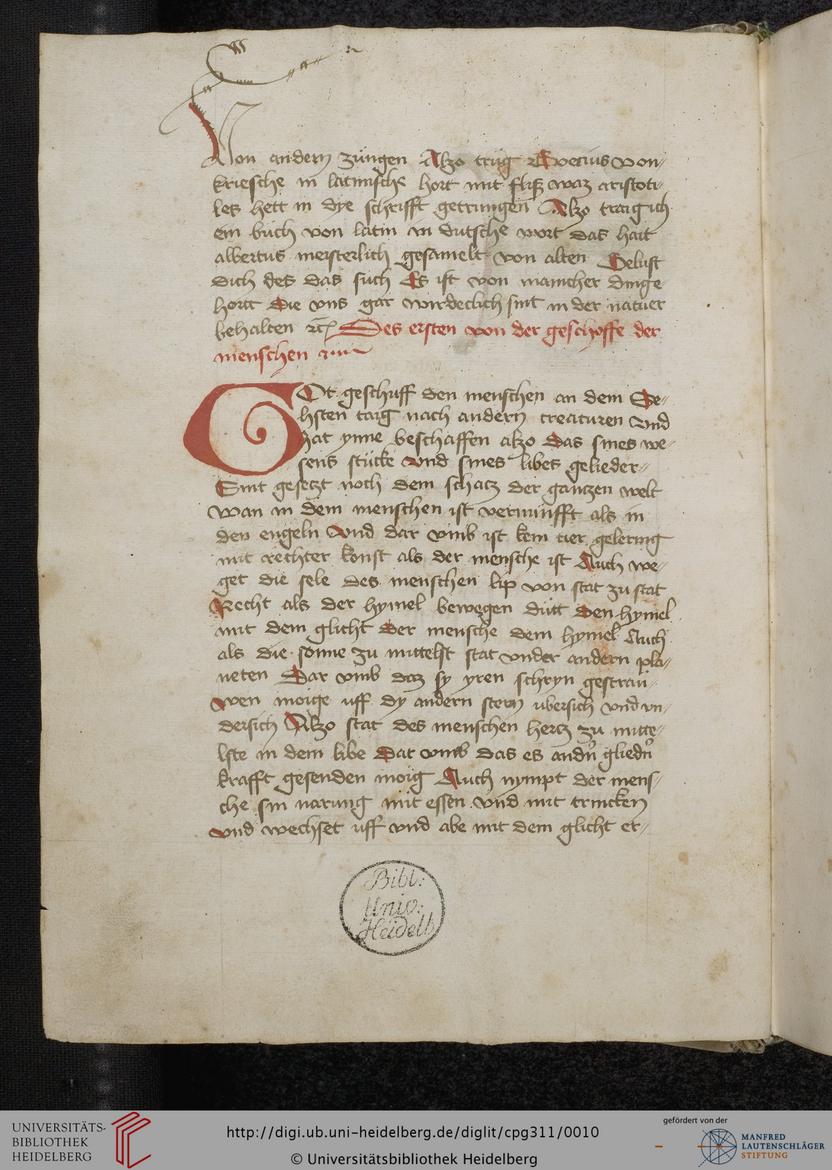 Von andern zungen Alzo trug Averius von
kriesche in latinische hort mit flisz waz aristoti
les hett in dye schrifft getrungen Alzo traig ich
ein buch von latin in dutsche wort das hait
albertus meisterlich gesamelt von alten Gelust
dich des das such Es ist von mancher dinge
hortt Die vns gar wirdeclich sint in der natuer
behalten rc Des ersten von der geschoffe der
menschen
GOt geschuff den menschen an dem Se-
hsten taig nach andern creaturen Vnd
hat ynne beschaffen alzo das sines we-
sens stucke Vnd sines libes gelieder
Sint gesetzt noch dem schatz der gantzen welt
Wan in dem menschen ist vernunfft als in
den engeln Vnd dar vmb ist kein tier gelering
mit rechter konst als der mensche ist Auch we-
get die sele des menschen lip von stat zu stat
Recht als der hymel bewegen dutt Den hymel
mit dem glicht Der mensche dem hymel Auch
als die sonne zu mittelst stat vnder andern pla-
neten Dar vmb daz sy yren schyn gestrau-
wen moige uff dy andern stern ubersich vnd vn-
dersich Alzo stat des menschen hertz zu mitte-
lste in dem libe Dat vmb das es andn gliedn
krafft gesenden moig Auch nympt der mens-
che sin narung mit essen vnd mit trincken
vnd wechset uff vnd abe mit dem glicht er
Bibl:
Univ:
Heidelb
UNIVERSITÄTS-
BIBLIOTHEK
HEIDELBERG
http://digi.ub.uni-heidelberg.de/diglit/cpg311/0010
© Universitätsbibliothek Heidelberg
gefördert von der
MANFRED
LAUTENSCHLÄGER
STIFTUNG